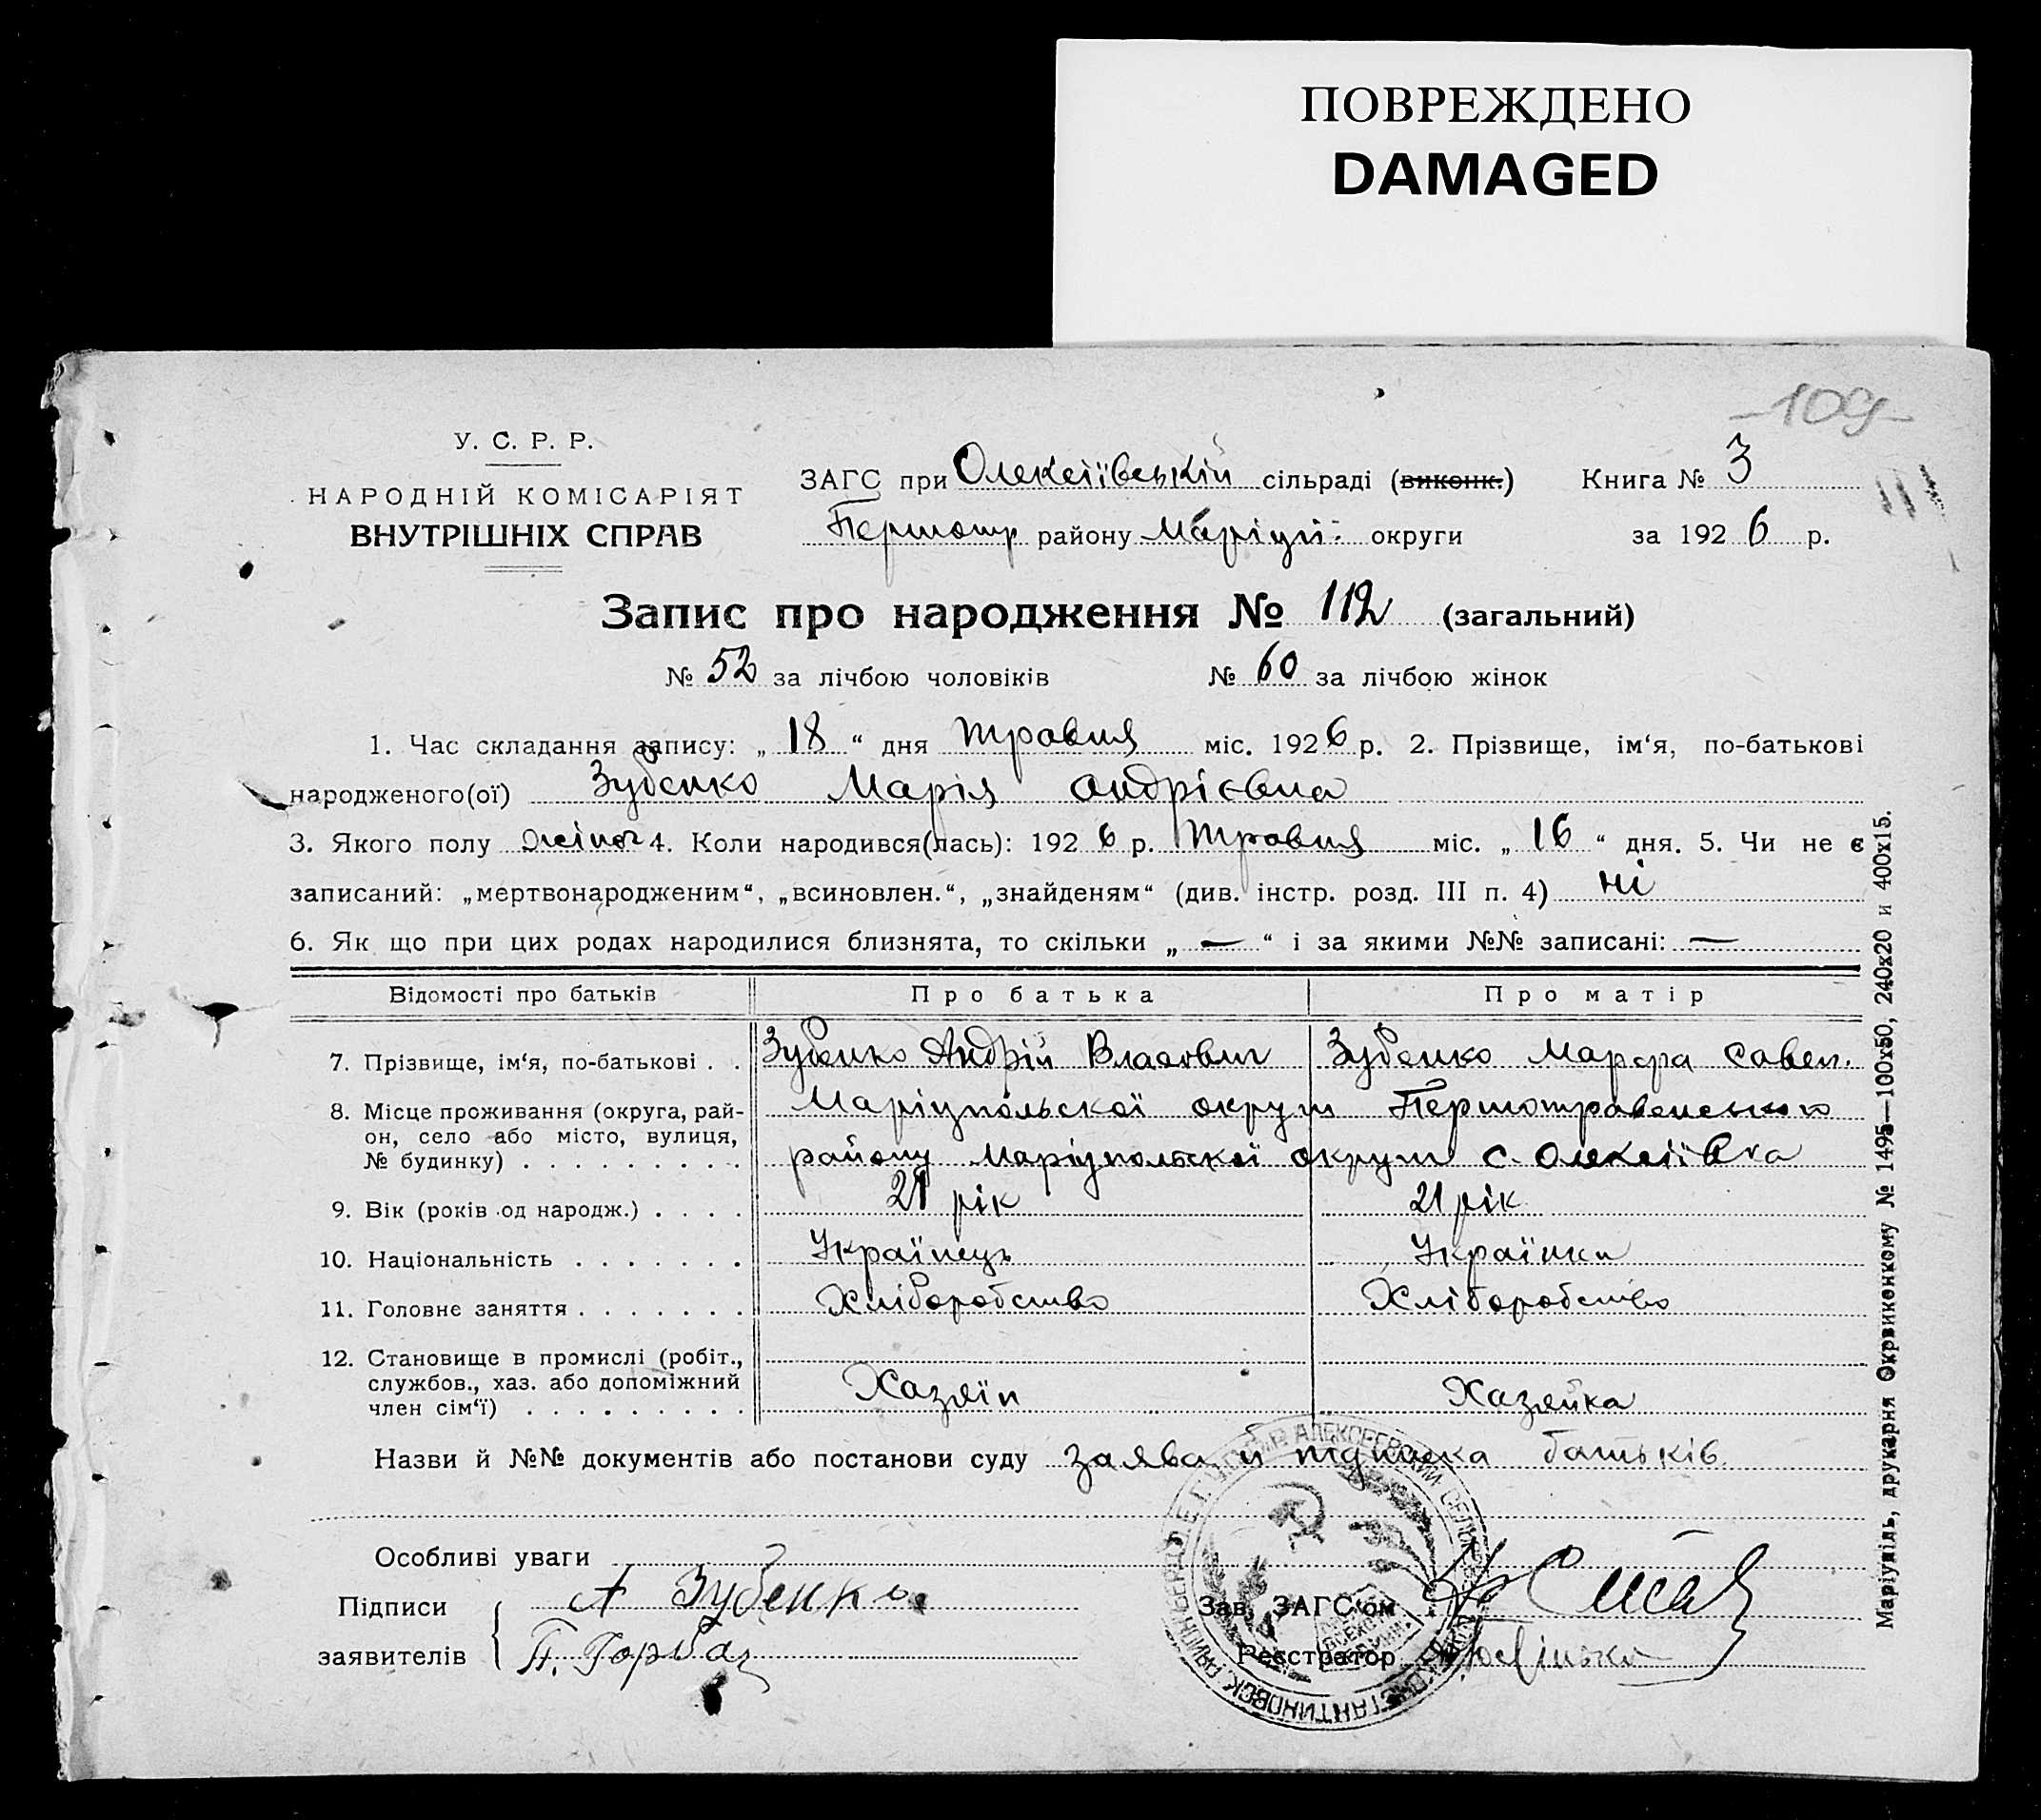 ПОВРЕЖДЕНО
DAMAGED
-109-
У. С. Р. Р.
НАРОДНІЙ КОМІСАРІЯТ
ВНУТРІШНІХ СПРАВ
ЗАГС при Олексіївській сільраді (виконк.) Книга № 3
Першотр району Маріуп. округи за 1926 р.
Запис про народження № 112 (загальний)
№ 52 за лічбою чоловіків № 60 за лічбою жінок
1. Час складання запису: „ 18 “ дня травня міс. 1926 р. 2. Прізвище, ім‘я, по-батькові
народженого(ої) Зубенко Марія Андрієвна
3. Якого полу жіноч 4. Коли народився(лась): 1926 р. травня міс. „ 16 “ дня. 5. Чи не є
записаний: „мертвонародженим“, „всиновлен.“, „знайденям“ (див. інстр. розд. III п. 4) ні
6. Як що при цих родах народилися близнята, то скільки „ — “ і за якими №№ записані: —
Відомості про батьків Про батька Про матір
7. Прізвище, ім‘я, по-батькові . . Зубенко Андрій Власович Зубенко Марфа Савел.
8. Місце проживання (округа, рай-
он, село або місто, вулиця,
№ будинку) . . . . . . . . .
Маріупольскої округи Першотравенського
району Маріупольскої округи с. Олексіївка
9. Вік (років од народж.) . . . . 21 рік 21 рік
10. Національність . . . . . . . Українець Українка
11. Головне заняття . . . . . . . Хліборобство Хліборобство
12. Становище в промислі (робіт.,
службов., хаз. або допоміжний
член сім‘ї) . . . . . . . . .
Хазяїн Хазяйка
Назви й №№ документів або постанови суду заява й підписка батьків
Особливі уваги
Підписи
заявителів
А Зубенко
П. Горбаг
Зав. ЗАГС‘ом
Реєстратор
Маріупіль, друкарня Окрвиконкому № 1495—100x50, 240x20 и 400x15.